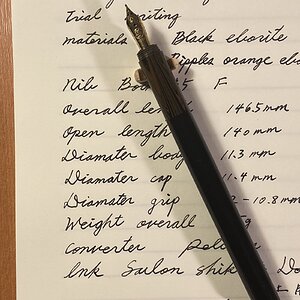 Trial writing
materials Black ebonite
Ripples orange
Nib F
Overall 146.5 mm
Open length 140 mm
Diamater body 11.3 mm
Diamater cap 11.4 mm
Diamater grip - 10.8 mm
Weight overall
Converter
Ink Sailor